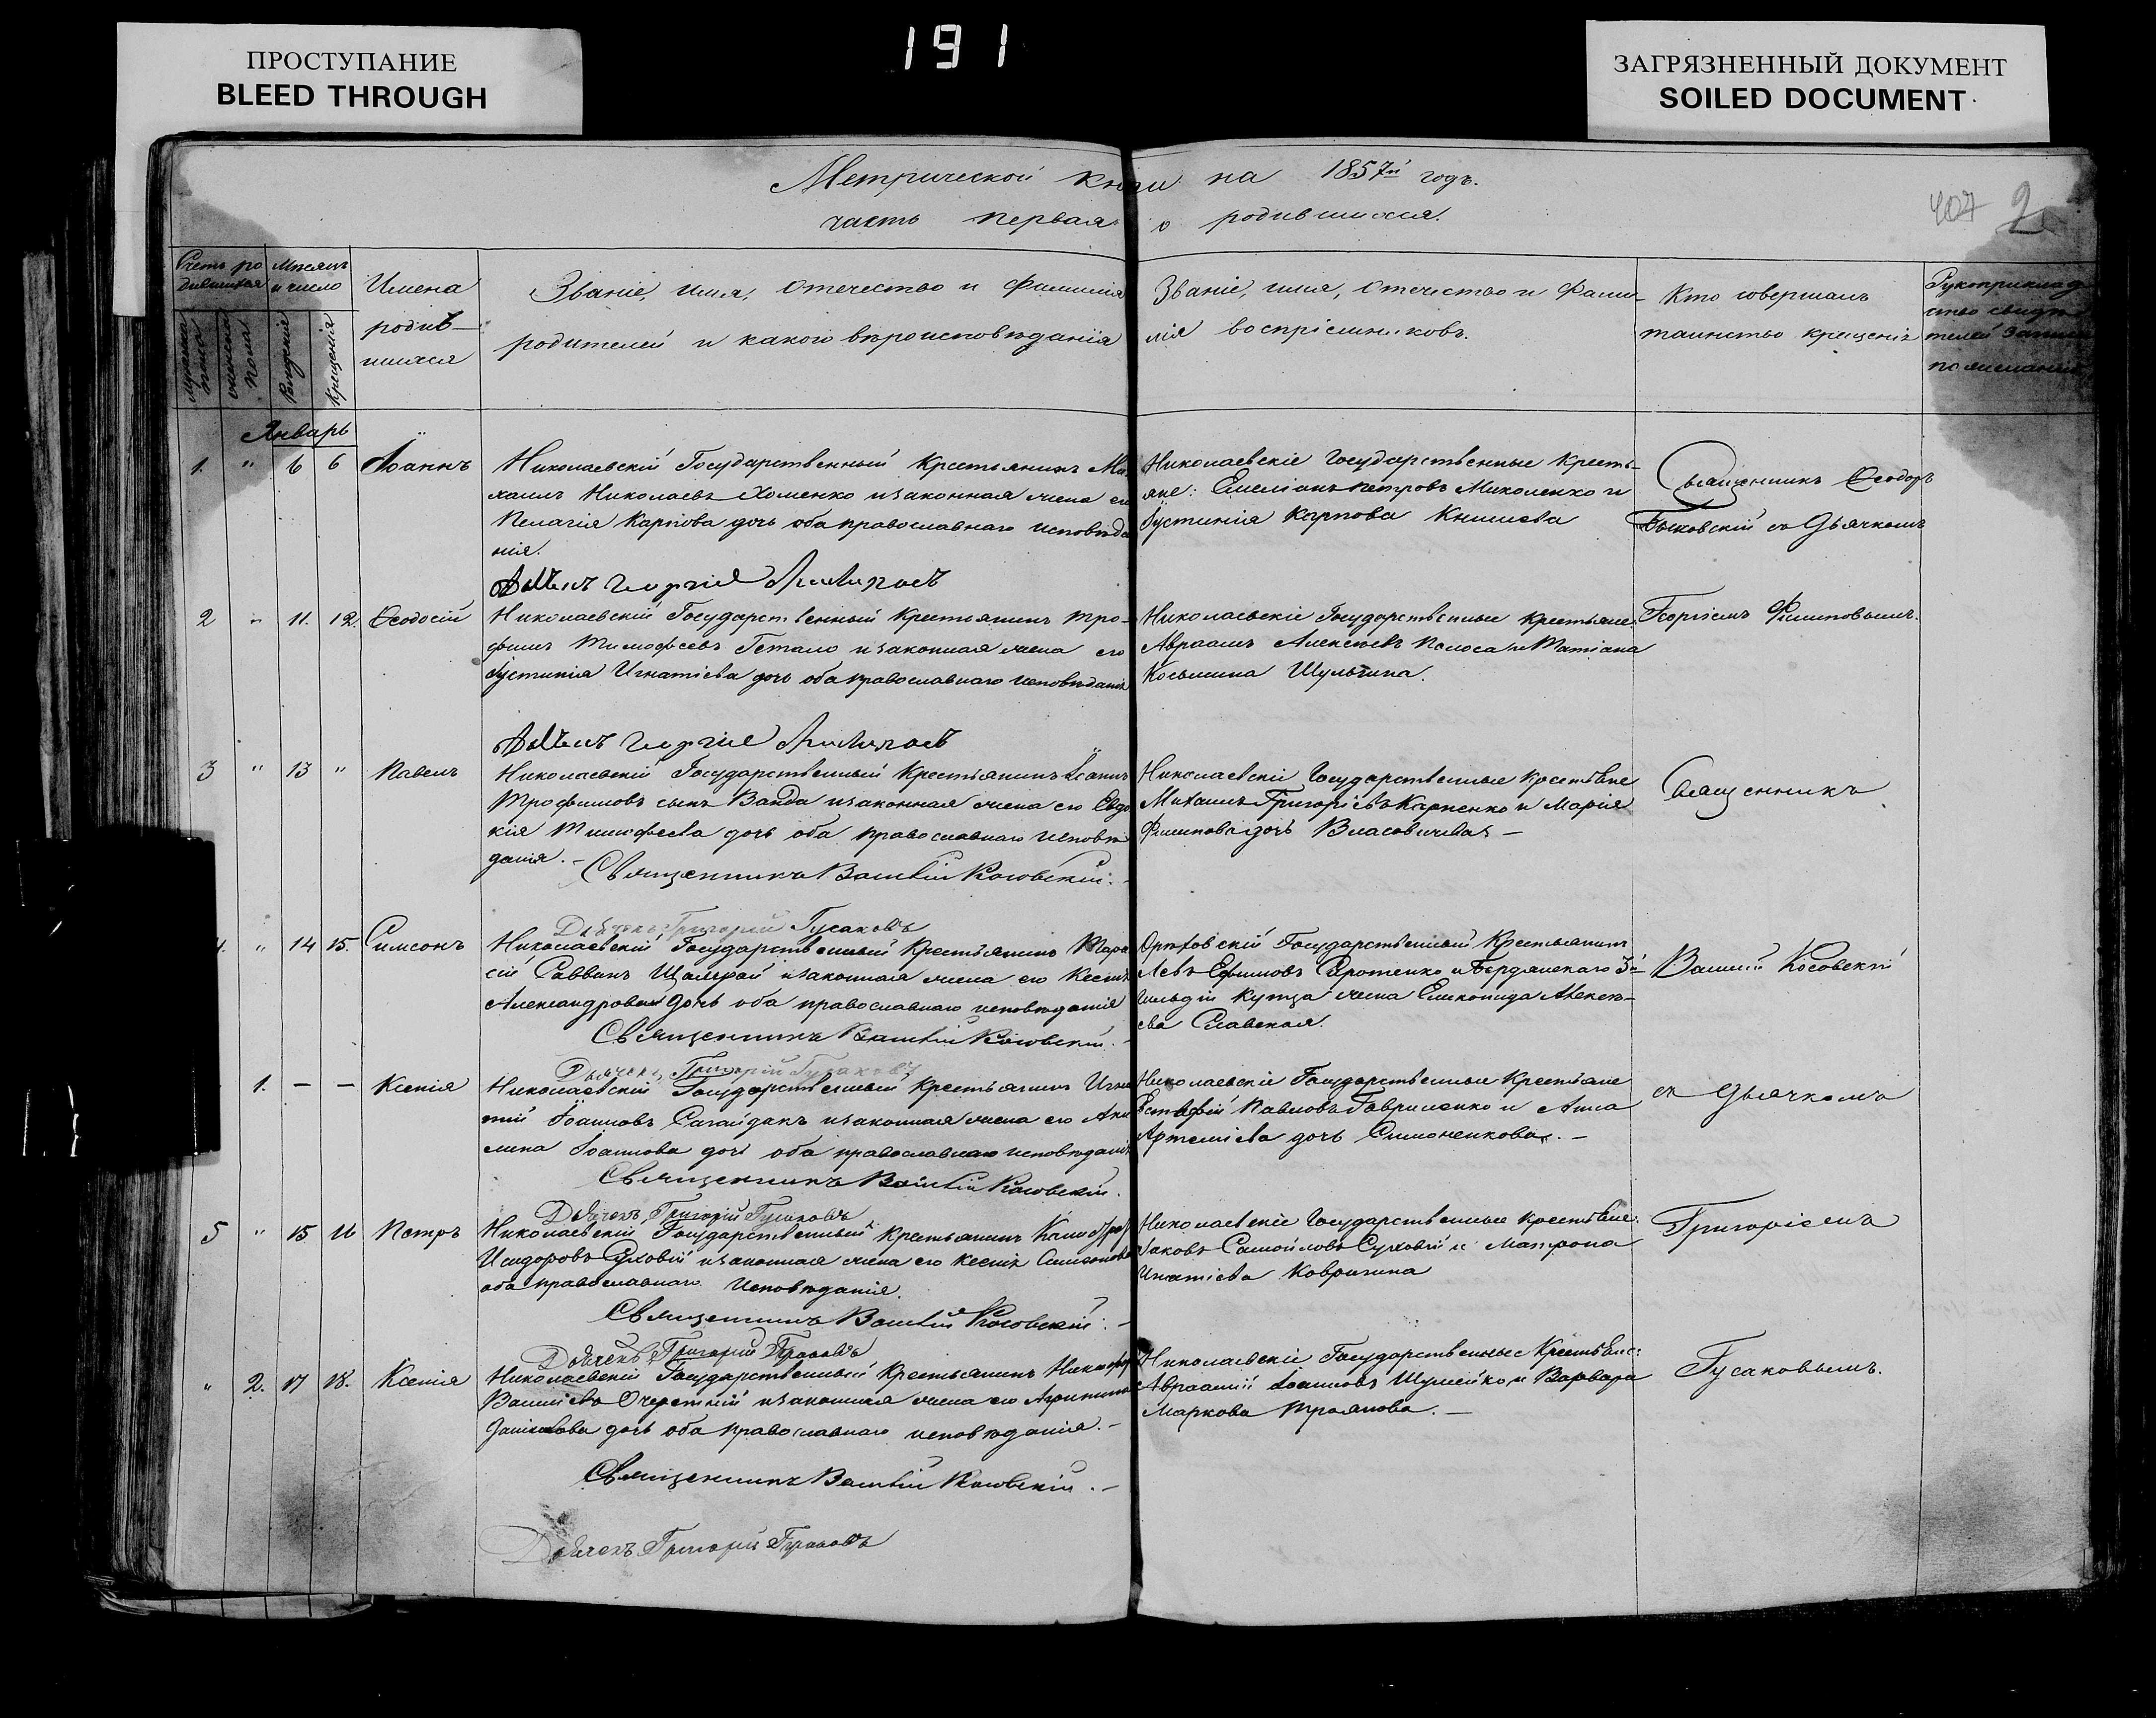 ПРОСТУПАНИЕ
BLEED THROUGH
191
ЗАГРЯЗНЕННЫЙ ДОКУМЕНТ
SOILED DOCUMENT
Метрической книги на 1857й годъ.
часть первая о родившихся.
407 2
Счетъ ро
дившихся
Мѣсяцъ
и число
мужеска
пола
женска
пола
Рожденія
Крещенія
Имена
родив-
шихся
Званіе, имя, отечество и фамилія
родителей и какого вѣроисповѣданія
Званіе, имя, отечество и фами-
лія воспріемниковъ.
Кто совершалъ
таинство крещенія
Рукоприклад
ство свидѣ
телей записи
по желанію
Январь
1. " 6 6 Іоаннъ
Николаевскій Государственный Крестьянинъ Ми
хаилъ Николаевъ Хоменко и законная жена его
Пелагія Карпова дочь оба православнаго исповѣда
нія.
Николаевскіе Государственные Кресть-
яне: Емеліанъ Петровъ Миколенко и
Іустинія Карпова
Священникъ Ѳеодоръ
Быковскій съ Дьячкомъ
2 " 11. 12. Ѳеодосій
Николаевскій Государственный Крестьянинъ Тро-
фимъ Тимофеевъ Гетало и законная жена его
Іустинія Игнатіева дочь оба православнаго исповѣданія
Николаевскіе Государственные Крестьяне:
Авраамъ Алексѣевъ и Татіана
Косьмина Шульгина.
Георгіемъ Филиповымъ.
3 " 13 " Павелъ
Николаевскій Государственный Крестьянинъ Іоаннъ
Трофимовъ сынъ Ванда и законная жена его Евдо
кія Тимофеева дочь оба православнаго исповѣ
данія. -
Священникъ Василій Косовскій. -
Николаевскіе Государственные Крестьяне
Михаилъ Григоріевъ Карпенко и Марія
Филипова дочь -
Священникъ
Дьячекъ Григорій Гусаковъ
4. " 14 15. Симеонъ
Николаевскій Государственный Крестьянинъ Тара
сій Саввинъ и законная жена его Ксенія
Александрова дочь оба православнаго исповѣданія
Священникъ Василій Косовскій. -
Орѣховскій Государственный Крестьянинъ
Левъ Ефимовъ Сиротенко и Бердянскаго 3й
Гильдіи Купца жена Алексѣ-
ева Славская.
Василій Косовскій
Дьячекъ Григорій Гусаковъ
1. - - Ксенія
Николаевскій Государственный Крестьянинъ Игна
тій Іоанновъ Сагайдакъ и законная жена его Аки
лина Іоаннова дочь оба православнаго исповѣданія
Священникъ Василій Косовскій.
Николаевскіе Государственные Крестьяне
Евстафій Павловъ Гавриленко и Анна
Артеміева дочь Симоненкова. -
съ Дьячкомъ
Дьячекъ Григорій Гусаковъ
5 " 15 16 Петръ
Николаевскій Государственный Крестьянинъ
Исидоровъ Суховій и законная жена его Ксенія Симеонова
оба православнаго Исповѣданія.
Священникъ Василій Косовскій. -
Николаевскіе Государственные Крестьяне:
Іаковъ Самойловъ Суховій и Матрона
Игнатіева Ковригина
Григоріемъ
Дьячекъ Григорій Гусаковъ
" 2. 17 18. Ксенія
Николаевскій Государственный Крестьянинъ Никифоръ
Василіевъ Очеретній и законная жена его Агрипина
дочь оба православнаго исповѣданія. -
Священникъ Василій Косовскій. -
Николаевскіе Государственные Крестьяне:
Авраамій Іоанновъ Шумейко и Варвара
Маркова Троянова. -
Гусаковымъ.
Дьячекъ Григорій Гусаковъ